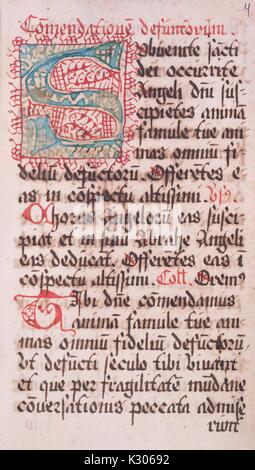 4
Co͞mendatione͞ defunctorum.
Subvenite sancti
dei occurrite
Angeli dn͞i sus-
cipietes anima͞
famule tue ani
mas omniu͞ fi
deliu͞ defu͞ctoru͞. Offeretes e
as in co͞spectu altissimi. Vs̄.
Chorus angeloru͞ eas susci
piat et in sinu Abrahe Angeli
eas deducat. Offeretes eas i
co͞spectu altissimi. Coll. Oremꝰ
Tibi dn͞e co͞mendamus
anima͞ famule tue ani
mas omniu͞ fideliu͞ defu͞ctoru͞
Vt defu͞cti seculo tibi vivant
et que per fragilitate͞ mu͞dane
co͞versationis peccata admise
runt
alamy
alamy stock photo
K30692